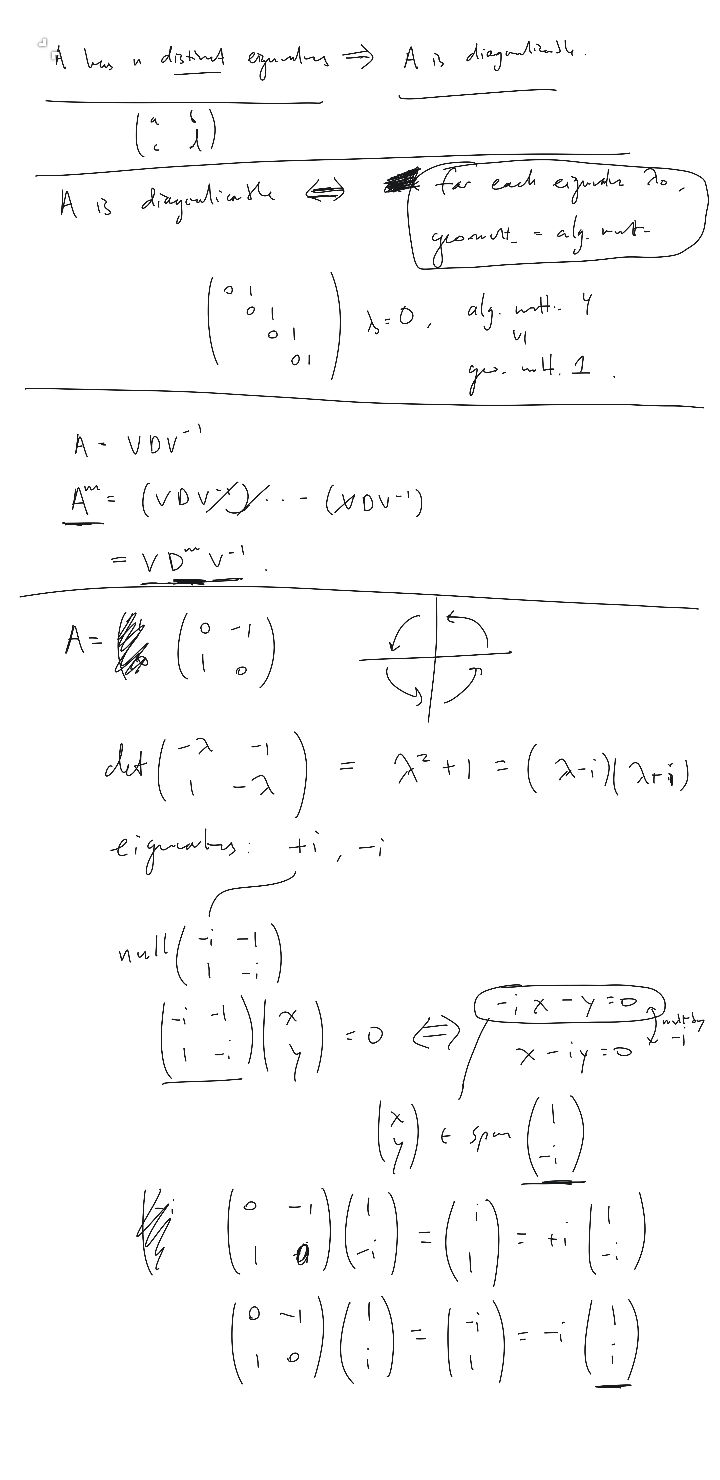 A has n distinct eigenvalues ⇒ A is diagonalizable.
(a b
c d)
A is diagonalizable ⇔ For each eigenvalue λ₀,
geo mult = alg. mult
(0 1
0 1
0 1
0 1) λ=0, alg. mult. 4
∨|
geo. mult. 1.
A = VDV⁻¹
Aᵐ = (VDV⁻¹) ... (VDV⁻¹)
= V Dᵐ V⁻¹.
A = (0 -1
1 0)
det (-λ -1
1 -λ) = λ² + 1 = (λ-i)(λ+i)
eigenvalues: +i, -i
null (-i -1
1 -i)
(-i -1
1 -i) (x
y) = 0 ⇔ -i x - y = 0
x - iy = 0
mult by
-i
(x
y) ∈ span (1
-i)
(0 -1
1 0) (1
-i) = (i
1) = +i (1
-i)
(0 -1
1 0) (1
i) = (-i
1) = -i (1
i)